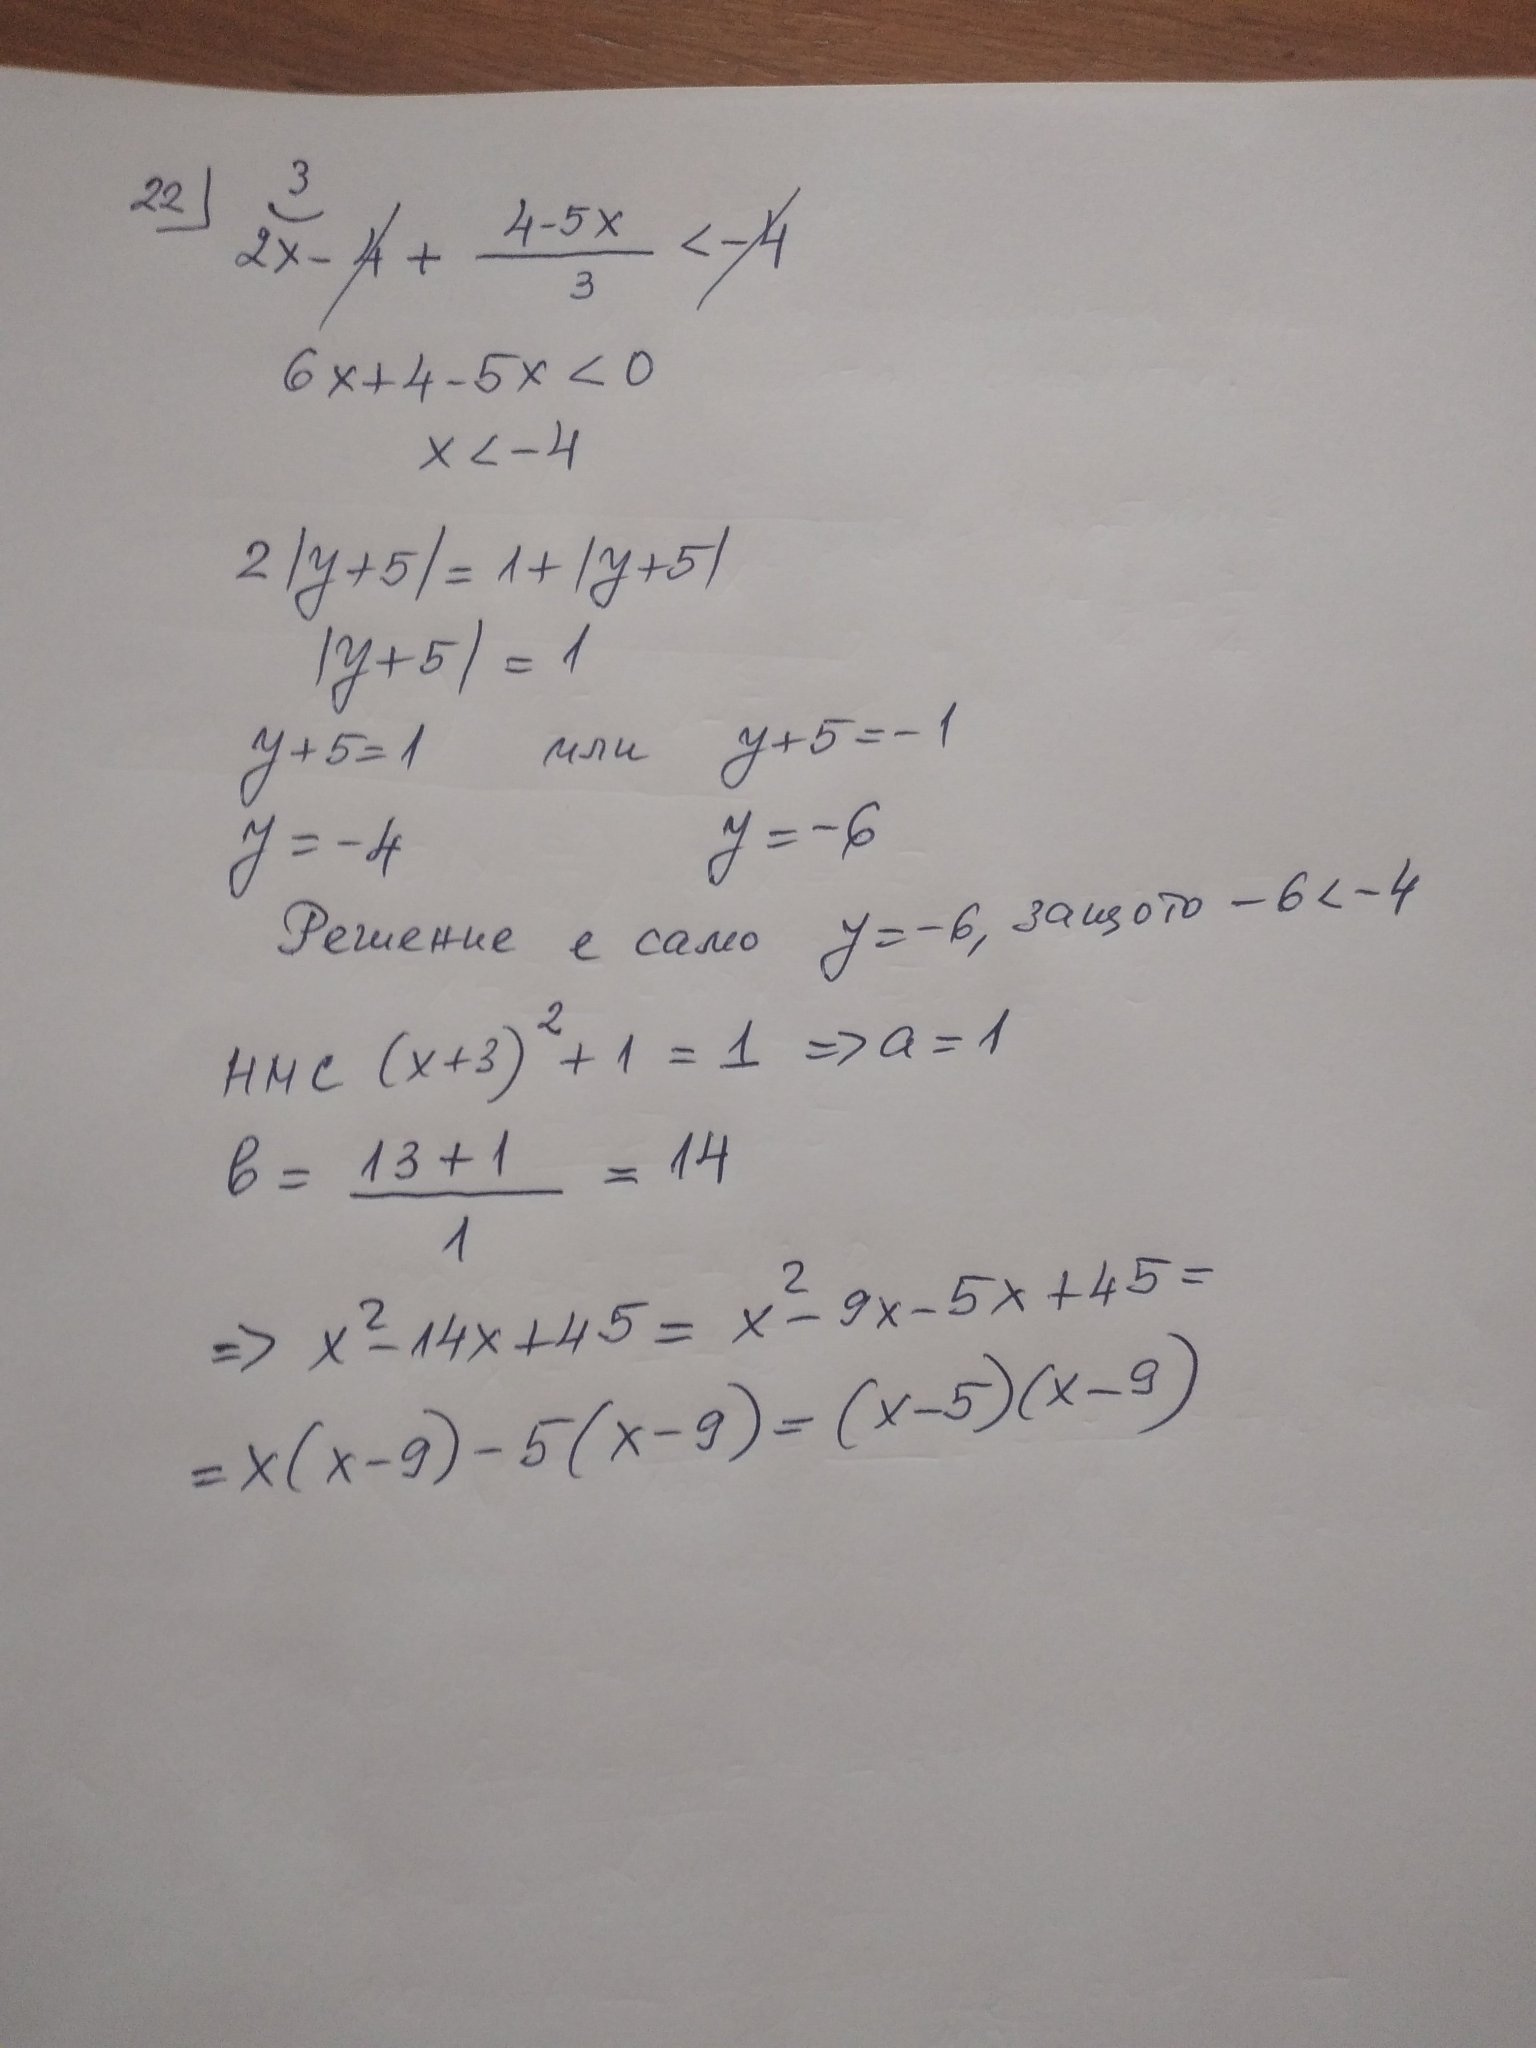 22] 3
2x - 4 + (4-5x)/3 < -4
6x+4-5x < 0
x < -4
2|y+5| = 1+|y+5|
|y+5| = 1
y+5=1 или y+5=-1
y = -4 y = -6
Решение е само y=-6, защото -6<-4
НМС (x+3)² + 1 = 1 => a = 1
b = (13+1)/1 = 14
=> x² - 14x + 45 = x² - 9x - 5x + 45 =
= x(x-9) - 5(x-9) = (x-5)(x-9)